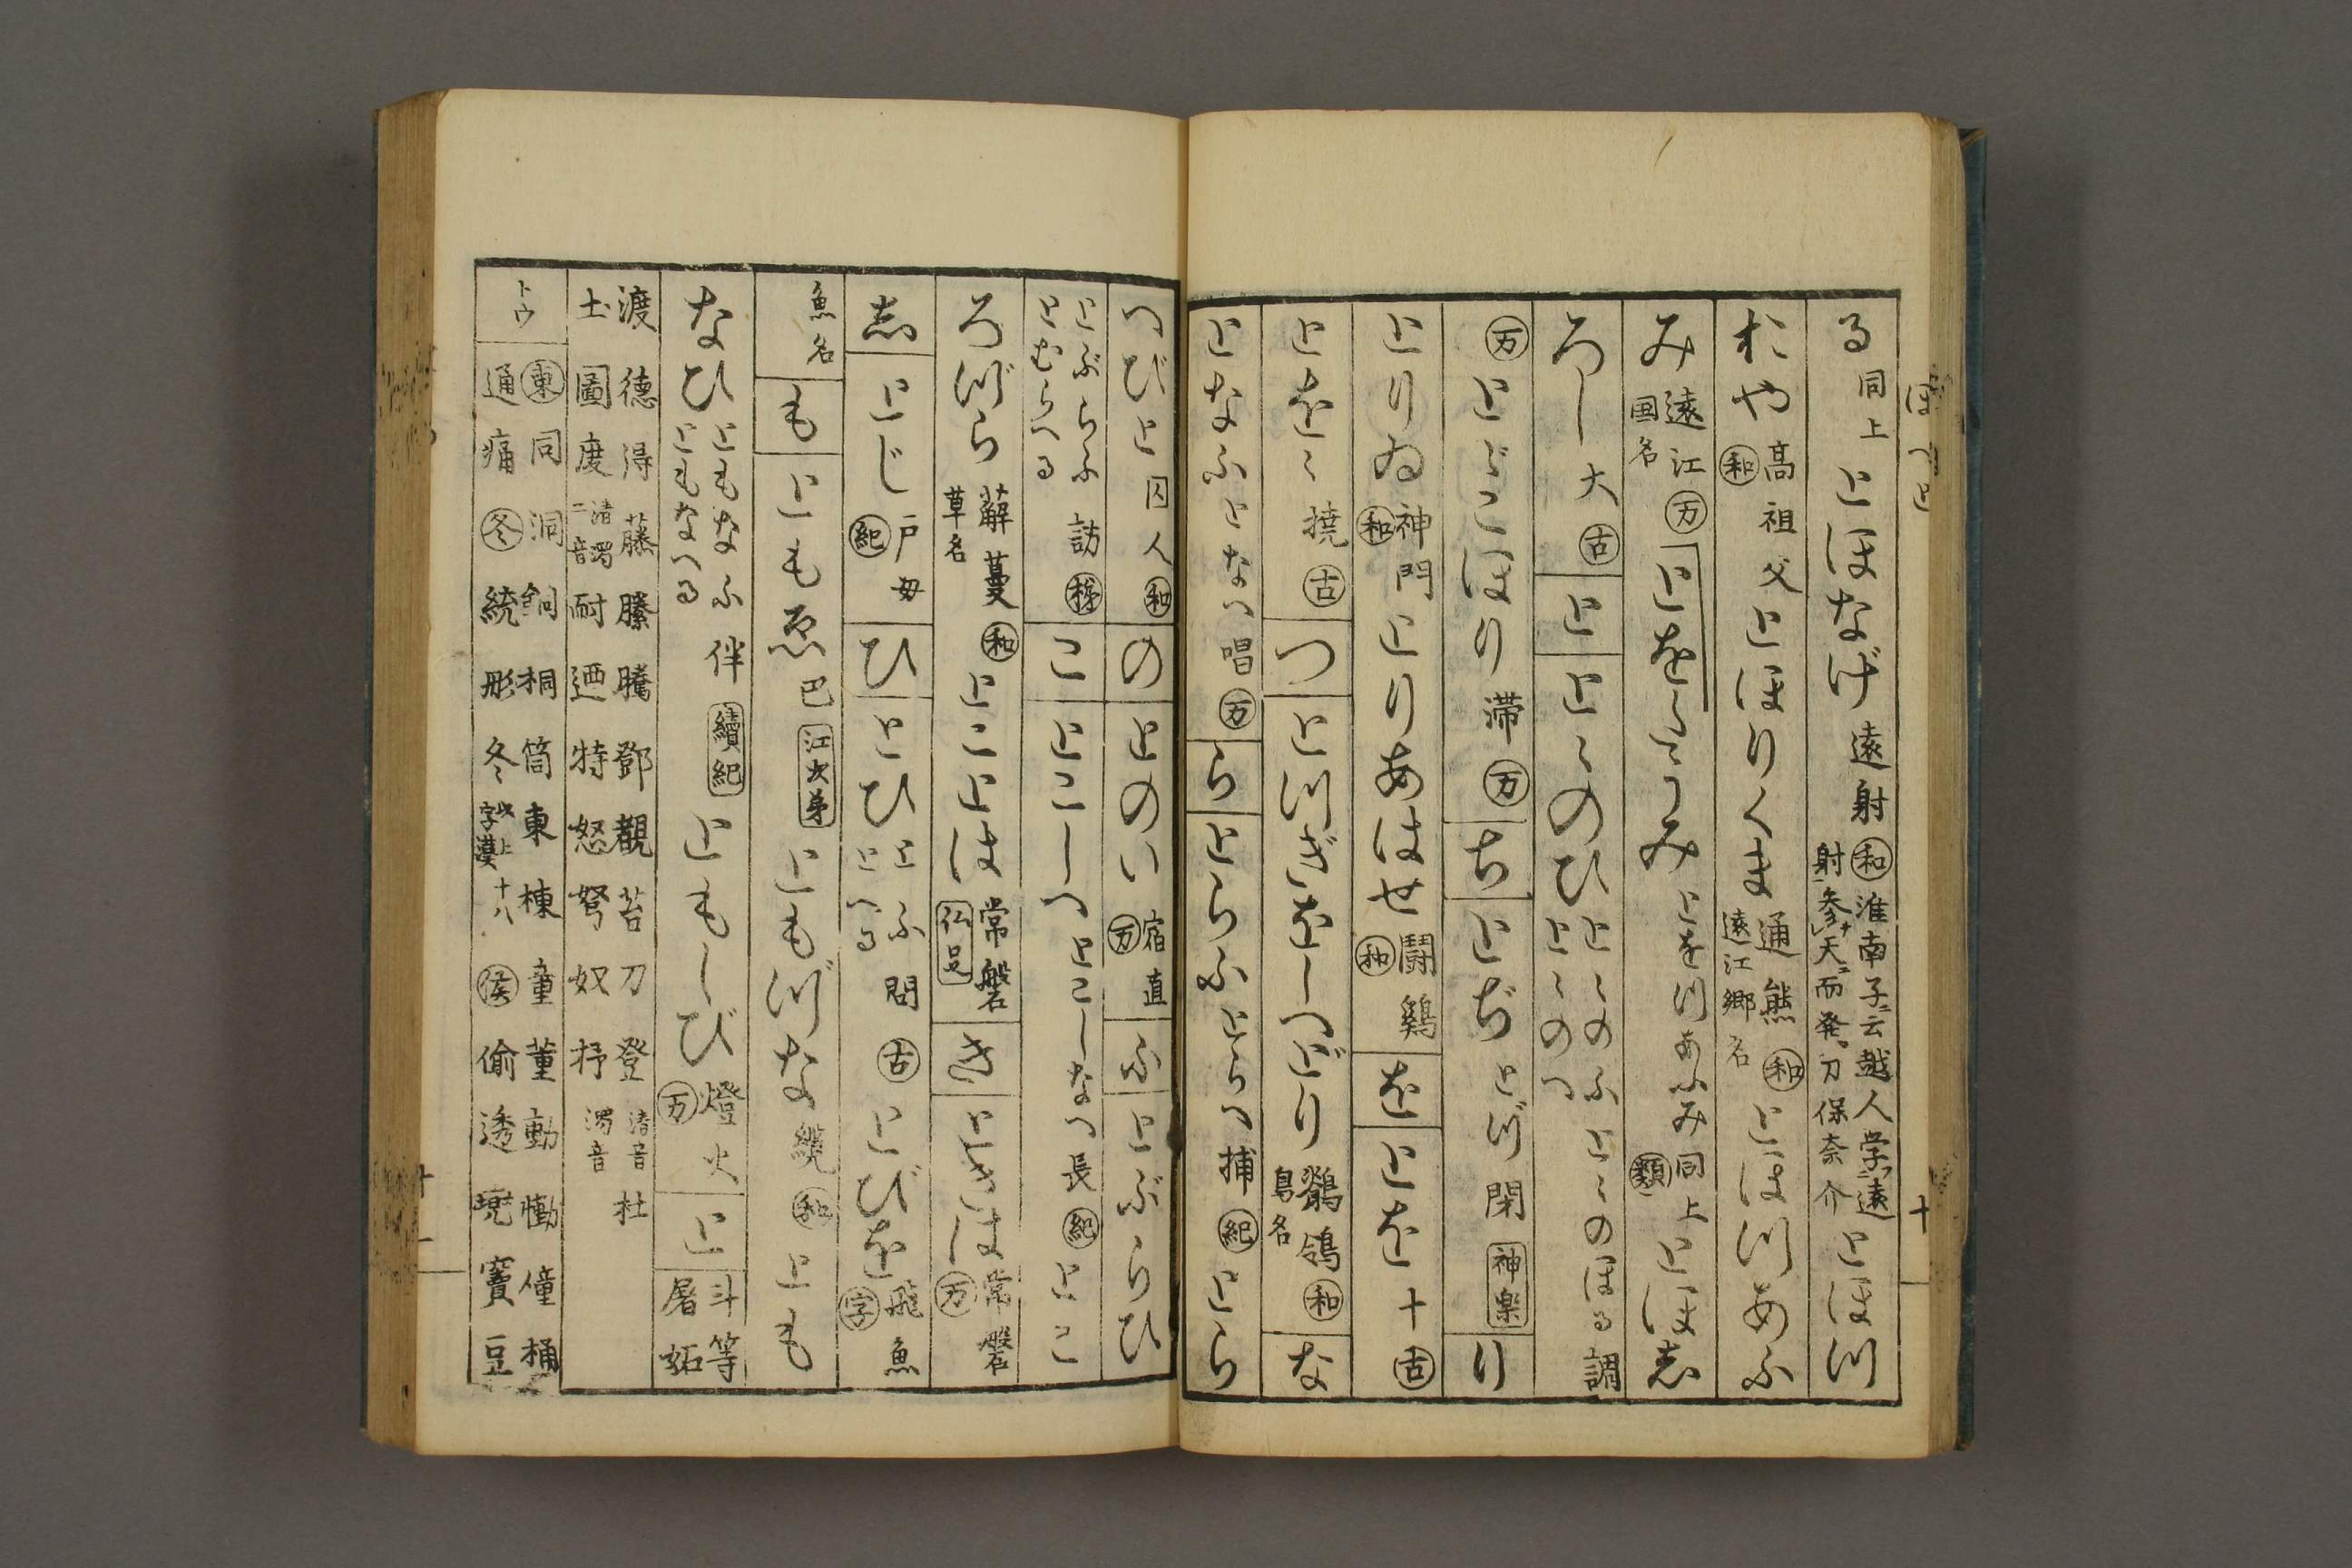 る 同上 とほなげ 遠射 和 淮南子云越人学遠射参天而発刀保奈介 とほつ
おや 高祖父 和 とほりくま 通熊 和 遠江郷名 とほつあふ
み 遠江 国名 万 とをたうみ とをつあふみ 同上 類 とほし
ろし 大 古 と とゝのひ とゝのふ とゝのへ とゝのほる 調
万 とゞこほり 滞 万 ち とぢ とづ 閉 神楽 り
とりゐ 神門 和 とりあはせ 闘鶏 和 を とを 十 古
とをゝ 撓 古 つ とつぎをしへどり 鶺鴒 鳥名 和 な
となふ となへ 唱 万 ら とらふ とらへ 捕 紀 とら
つびと 囚人 和 の とのい 宿直 万 ふ とぶらひ
とぶらふ とむらへる 訪 こ とこしへ とこしなへ 長 紀 とこ
ろづら 薢蔓 草名 和 とことは 常磐 仏足 き ときは 常磐 万
し とじ 戸毎 紀 ひ とひ とふ とへる 問 古 とびを 飛魚 字
魚名 も ともゑ 巴 江次第 ともづな 纜 和 とも
なひ ともなふ ともなへる 伴 續紀 ともしび 燈火 万 と 斗等屠妬
渡德得藤縢騰鄧覩苔刀登 清音 杜
土圖度 清濁二音 耐迺特怒弩奴抒 濁音
トウ 東 同洞銅桐筒東棟童董動慟僮桶
通痛 冬 統彤冬 以上十八字漢 侯 偷透 竇豆
ほへと
十
十一